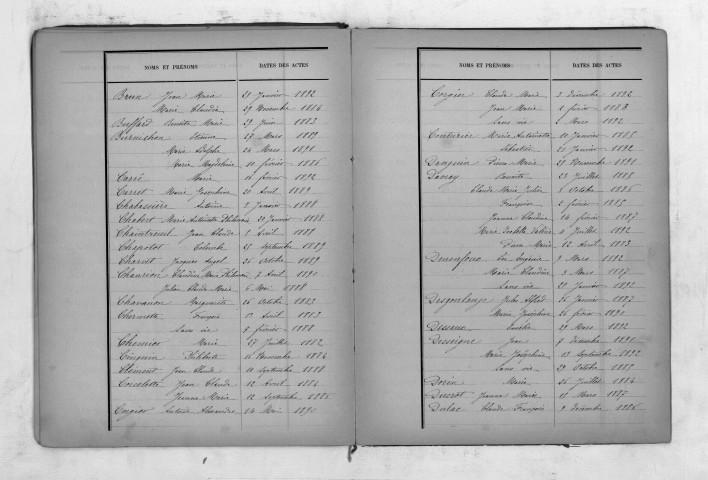 NOMS ET PRÉNOMS DATES DES ACTES
Brun Jean Marie 21 Janvier 1892
Marie Claudia 29 Novembre 1884
Buffard Benoite Marie 29 Juin 1883
Burnichon Etienne 29 Mars 1889
Marie Adolphe 24 Mars 1891
Marie Magdeleine 10 février 1886
Carré Marie 16 février 1892
Carret Marie Joséphine 20 Avril 1889
Chabassière Antoine 2 Janvier 1888
Chabert Marie Antoinette Philomène 20 Janvier 1888
Chaintreuil Jean Claude 5 Avril 1889
Chapolot Colombe 25 septembre 1889
Charvet Jacques 25 Octobre 1889
Chavrion Claudine Marie Philomène 7 Avril 1891
Julien Claude Marie 6 Mai 1888
Chavanon Marguerite 26 Octobre 1883
Chermette François 12 Avril 1883
Sans vie 8 février 1888
Chemier Marie 17 Juillet 1882
Cinquin 16 Novembre 1884
Clément Jean Claude 10 septembre 1888
Corcelette Jean Claude 12 Avril 1884
Jeanne Marie 12 septembre 1886
Corgier Antoine Alexandre 14 Mai 1890
NOMS ET PRÉNOMS DATES DES ACTES
Corgier Claude Marie 3 décembre 1892
Jean Marie 1 février 1883
Sans vie 5 Mars 1892
Couturier Marie Antoinette 10 Janvier 1885
Sébastien 21 Janvier 1892
Danguin Pierre Marie 29 Novembre 1891
Danay Benoite 23 Juillet 1888
Claude Marie Julien 6 Octobre 1886
Françoise 2 février 1885
Jeanne Claudine 14 février 1887
Marie Valérie 6 Juillet 1892
Pierre Marie 12 Avril 1883
Eugénie 9 Mars 1892
Marie Claudine 3 Mars 1887
Sans vie 21 Janvier 1892
Desgoulange Jules Alfred 26 Janvier 1887
Marie Joséphine 26 février 1891
29 Mars 1892
Dessigne Jean 8 décembre 1891
Marie Joséphine 13 septembre 1892
Sans vie 29 Octobre 1888
Marie 26 Juillet 1884
Ducrot Jeanne Marie 18 Mars 1887
Dulac Claude François 9 décembre 1886